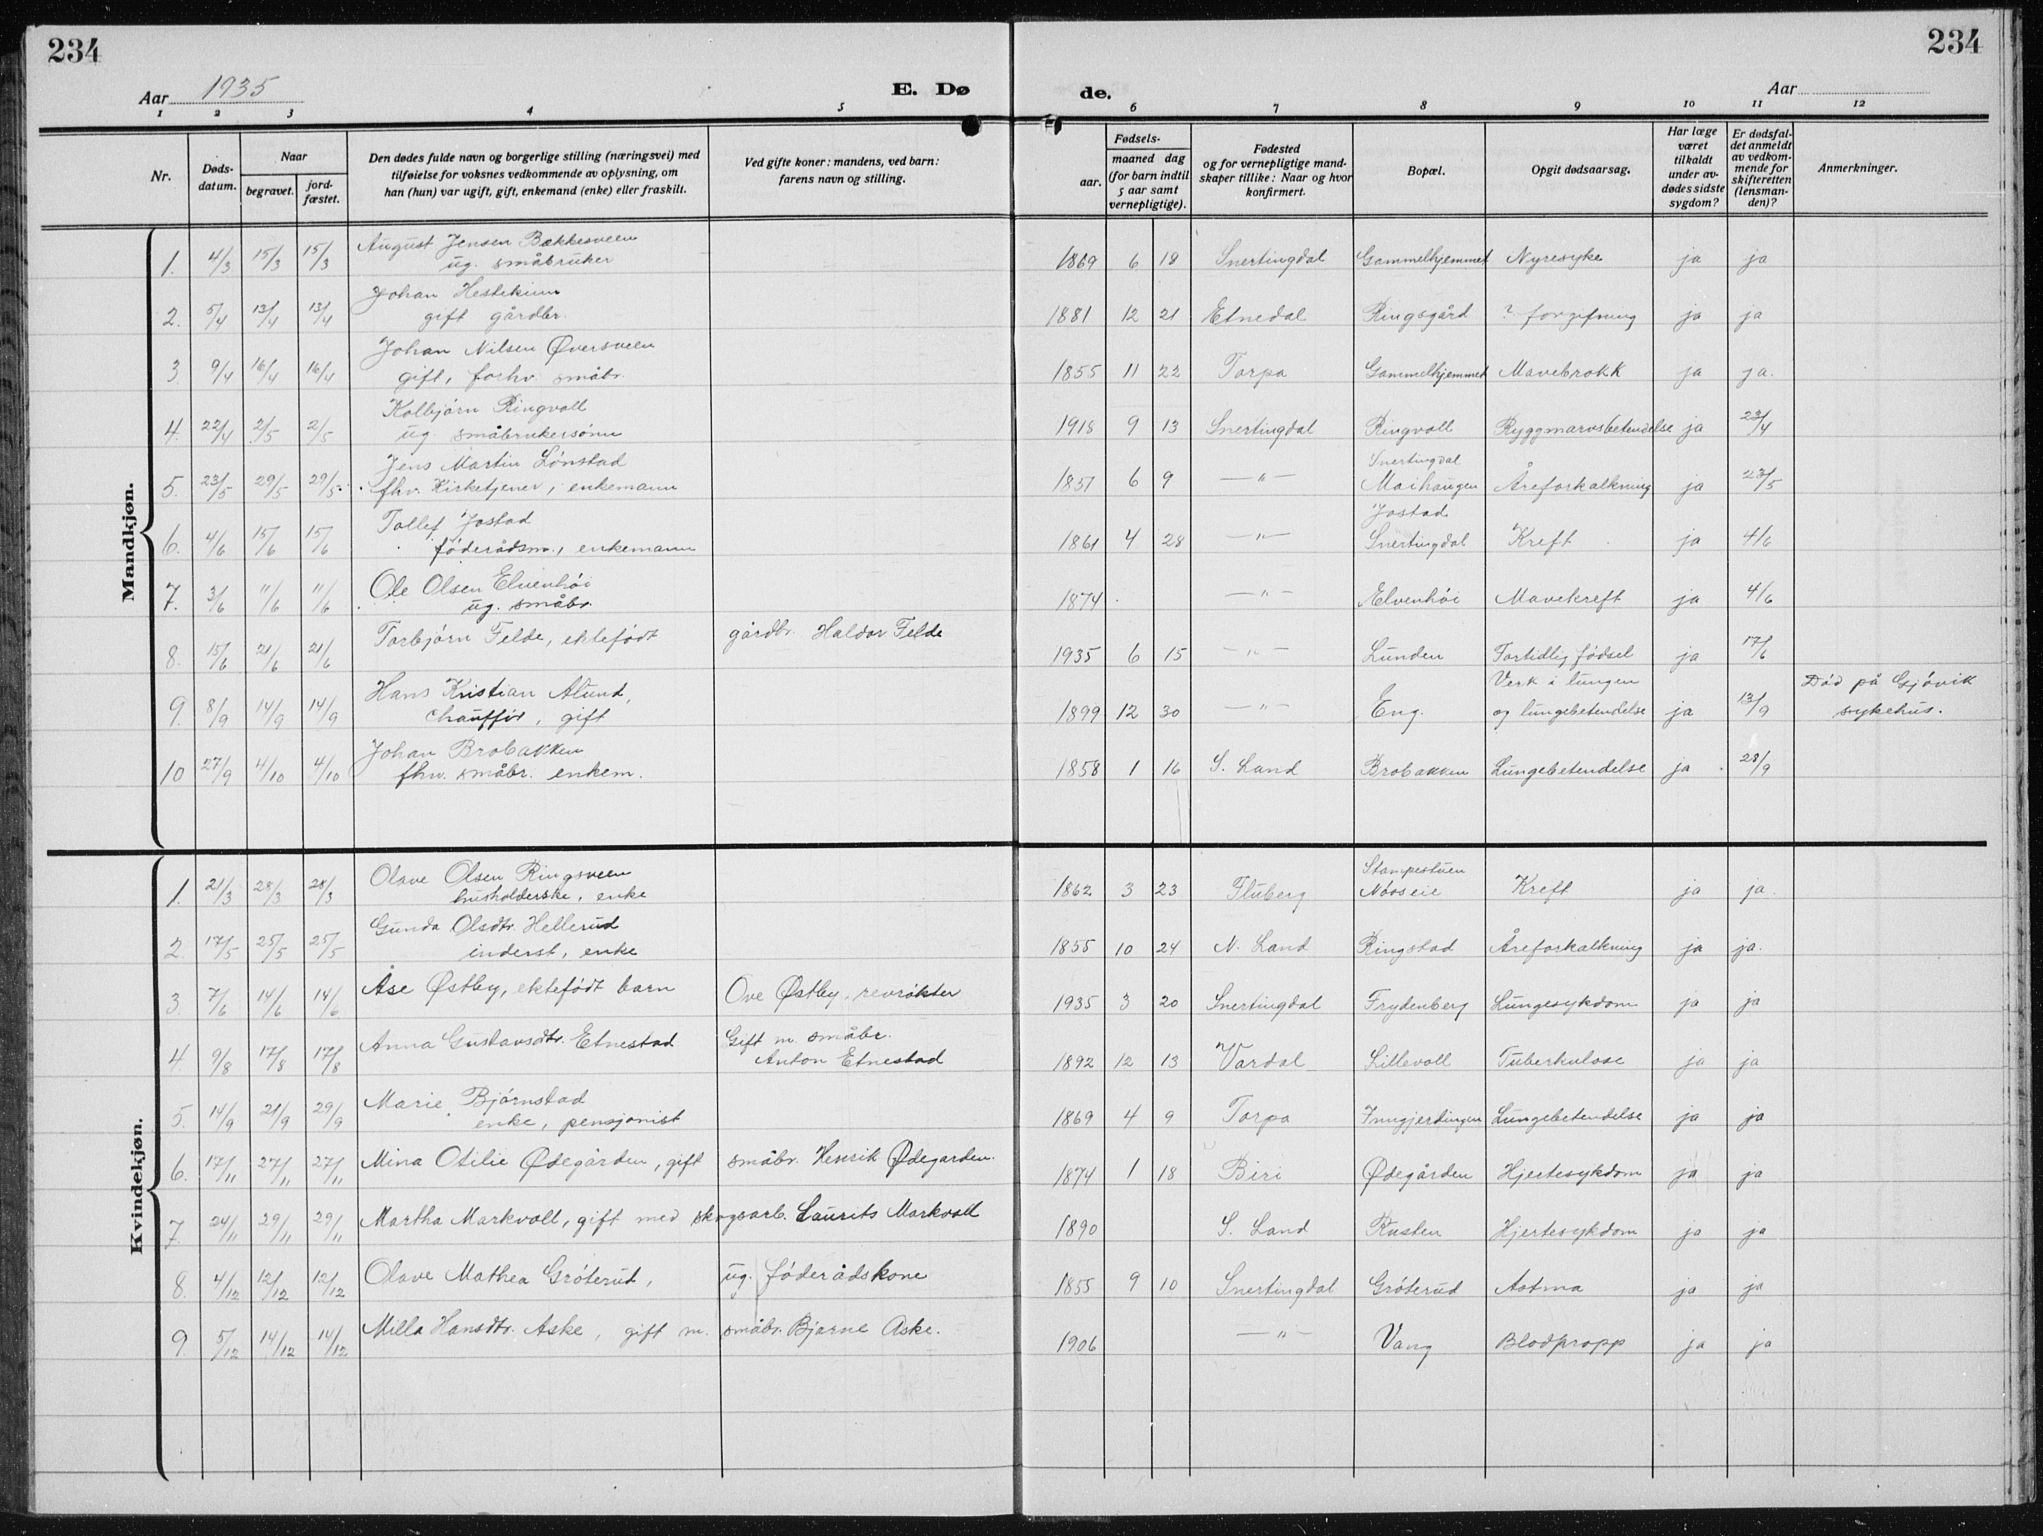 234
234
Aar 1935
E. Dø
de.
Aar
1 2 3 4 5 6 7 8 9 10 11 12
Nr.
Døds-
datum.
Naar
begravet.
jord-
fæstet.
Den dødes fulde navn og borgerlige stilling (næringsvei) med
tilføielse for voksnes vedkommende av oplysning, om
han (hun) var ugift, gift, enkemand (enke) eller fraskilt.
Ved gifte koner: mandens, ved barn:
farens navn og stilling.
Fødsels-
aar.
maaned dag
(for barn indtil
5 aar samt
vernepligtige).
Fødested
og for vernepligtige mand-
skaper tillike: Naar og hvor
konfirmert.
Bopæl.
Opgit dødsaarsag.
Har læge
været
tilkaldt
under av-
dødes sidste
sygdom?
Er dødsfal-
det anmeldt
av vedkom-
mende for
skifteretten
(lensman-
den)?
Anmerkninger.
Mandkjøn.
August Jensen Bækkesveen
1. 4/3 15/3 15/3 ug. småbruker 1869 6 18 Snertingdal Gammelhjemmet Nyresyke ja ja
Johan Hestekinn
2. 5/4 13/4 13/4 gift gårdbr. 1881 12 21 Etnedal Ringsgård ? forgifning ja ja
Johan Nilsen Øversveen
3. 9/4 16/4 16/4 gift, forhv. småbr. 1855 11 22 Torpa Gammelhjemmet Mavebrokk ja ja.
Kolbjørn Ringvoll
4. 22/4 2/5 2/5 ug. småbrukersønn 1918 9 13 Snertingdal Ringvoll Ryggmarvsbetendelse ja 23/4
Jens Martin Lønstad Snertingdal
5. 23/5 29/5 29/5 fhv. Kirketjener, enkemann 1857 6 9 —„— Maihaugen Åreforkalkning ja 23/5
Tollef Jostad Jostad
6. 4/6 15/6 15/6 føderådsm., enkemann 1861 4 28 —„— Snertingdal Kreft ja 4/6
Ole Olsen Elvenhøi
7. 3/6 11/6 11/6 ug. småbr. 1874 —„— Elvenhøi Mavekreft ja 4/6
Torbjørn Felde, ektefødt gårdbr. Haldor Felde
8. 15/6 21/6 21/6 1935 6 15 —„— Lunden Fortidlig fødsel ja 17/6
Hans Kristian Alund, Verk i lungen Død på Gjøvik
9. 8/9 14/9 14/9 Chauffør, gift 1899 12 30 —„— Eng. og lungebetendelse ja 13/9 sykehus.
Johan Brobakken
10 27/9 4/10 4/10 fhv. småbr. enkem. 1858 1 16 S. Land Brobakken Lungebetendelse ja 28/9
Kvindekjøn.
Olave Olsen Ringsveen Stampestuen
1. 21/3 28/3 28/3 husholderske, enke 1862 3 23 Fluberg Nøoseie Kreft ja ja.
Gunda Olsdtr. Hellerud
2. 17/5 25/5 25/5 inderst, enke 1855 10 24 N. Land Ringstad Åreforkalkning ja ja.
3. 7/6 14/6 14/6 Åse Østby, ektefødt barn Ove Østby, revrøkter 1935 3 20 Snertingdal Frydenberg Lungesykdom ja ja
Anna Gustavsdtr. Etnestad Gift m. småbr.
4. 9/8 17/8 17/8 Anton Etnestad 1892 12 13 Vardal Lillevoll Tuberkulose ja ja
Marie Bjørnstad
5. 14/9 21/9 29/9 enke, pensjonist 1869 4 9 Torpa Inngjerdingen Lungebetendelse ja ja
6. 17/11 27/11 27/11 Mina Otilie Ødegården, gift småbr. Henrik Ødegården. 1874 1 18 Biri Ødegården Hjertesykdom ja ja
7. 24/11 29/11 29/11 Martha Markvoll, gift med skogsarb. Laurits Markvoll 1890 S. Land Rusten Hjertesykdom ja ja
8. 4/12 12/12 12/12 Olave Mathea Grøterud, ug. føderådskone 1855 9 10 Snertingdal Grøterud Astma ja ja
9. 5/12 14/12 14/12 Milla Hansdtr. Aske, gift m. småbr. Bjarne Aske. 1906 —„— Vang Blodpropp ja ja